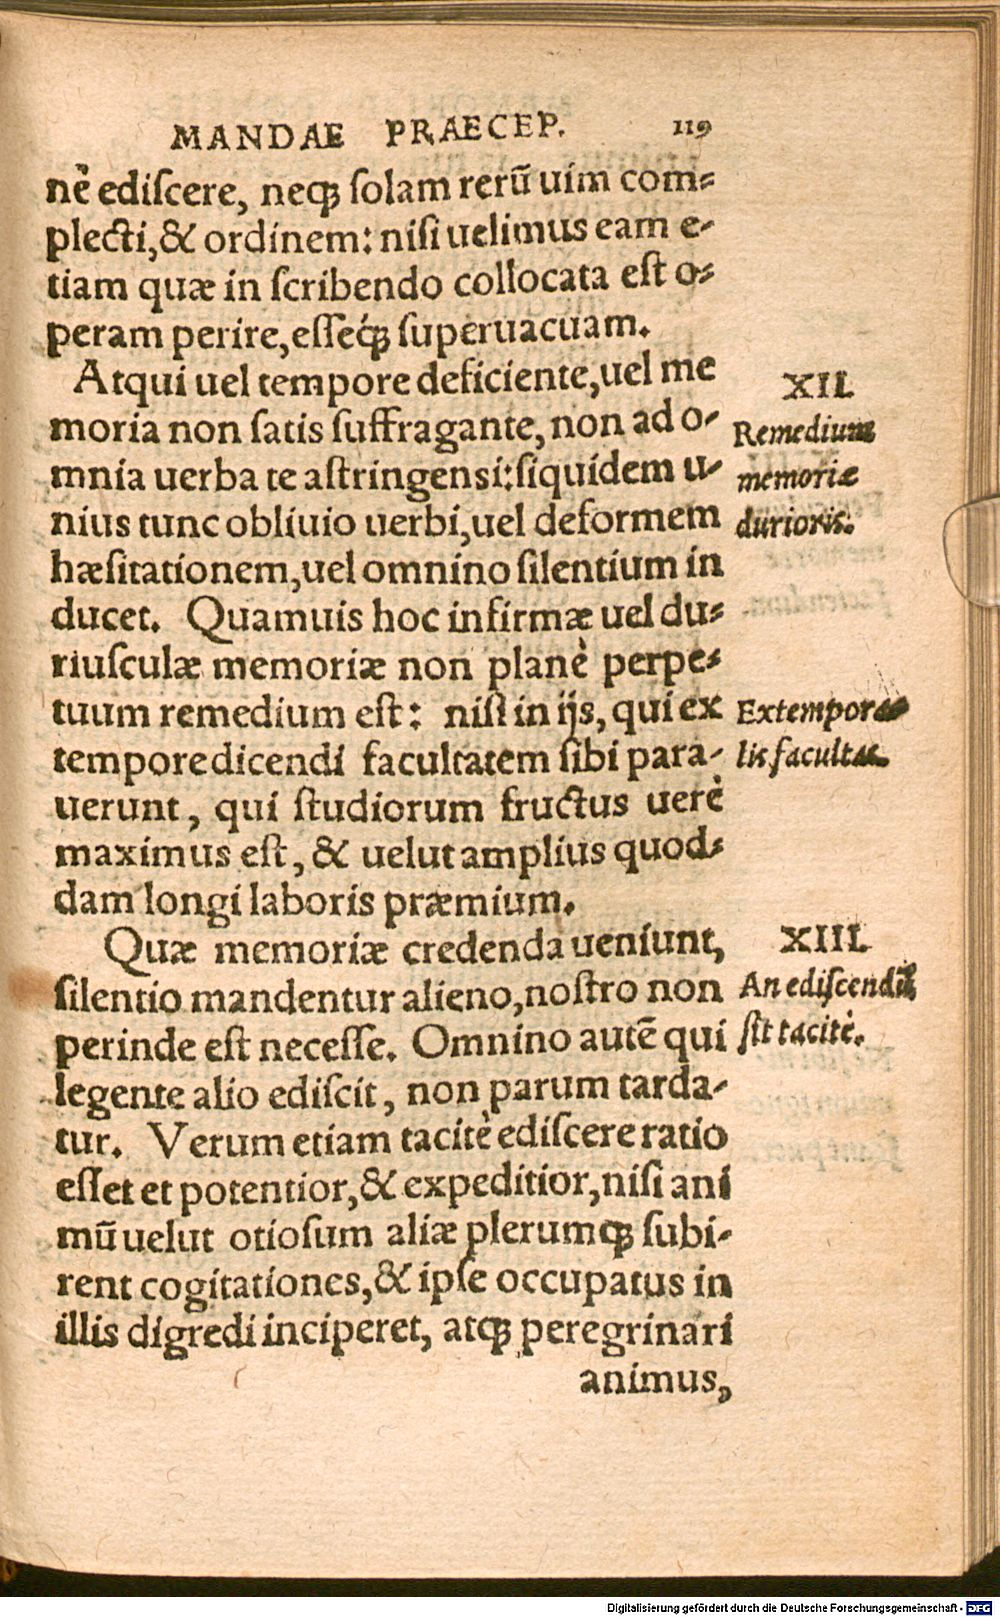 MANDAE PRAECEP. 119
nē ediſcere, neq́; ſolam rerū uim com-
plecti, & ordinem: niſi uelimus eam e-
tiam quæ in ſcribendo collocata eſt o-
peram perire, eſſeq́; ſuperuacuam.
Atqui uel tempore deficiente, uel me
moria non ſatis ſuffragante, non ad o-
mnia uerba te aſtringensi: ſiquidem u-
nius tunc obliuio uerbi, uel deformem
hæſitationem, uel omnino ſilentium in
ducet. Quamuis hoc infirmæ uel du-
riuſculæ memoriæ non planè perpe-
tuum remedium eſt: niſi in ijs, qui ex
tempore dicendi facultatem ſibi para-
uerunt, qui ſtudiorum fructus uerè
maximus eſt, & uelut amplius quod-
dam longi laboris præmium.
Quæ memoriæ credenda ueniunt,
ſilentio mandentur alieno, noſtro non
perinde eſt neceſſe. Omnino autē qui
legente alio ediſcit, non parum tarda-
tur. Verum etiam tacitè ediſcere ratio
eſſet et potentior, & expeditior, niſi ani
mū uelut otioſum aliæ plerumq; ſubi-
rent cogitationes, & ipſe occupatus in
illis digredi inciperet, atq; peregrinari
animus,
XII.
Remedium
memoriæ
durioris.
Extempora
lis facultas.
XIII.
An ediſcendū
ſit tacitè.
Digitalisierung gefördert durch die Deutsche Forschungsgemeinschaft - DFG